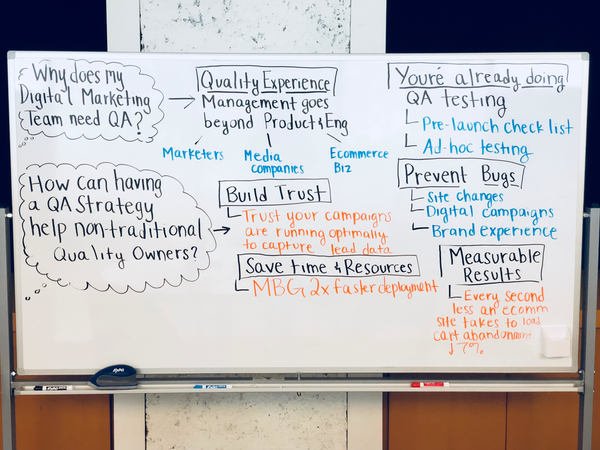 Why does my
Digital Marketing
Team need QA?
Quality Experience
Management goes
beyond Product & Eng
Marketers
Media
companies
Ecommerce
Biz
You're already doing
QA testing
Pre-launch check list
Ad-hoc testing
How can having
a QA Strategy
help non-traditional
Quality Owners?
Build Trust
Trust your campaigns
are running optimally
to capture lead data
Save time & Resources
MBG 2x faster deployment
Prevent Bugs
Site changes
Digital campaigns
Brand experience
Measurable
Results
Every second
less an ecomm
site takes to load
cart abandonment
↓ 7%
EXPO